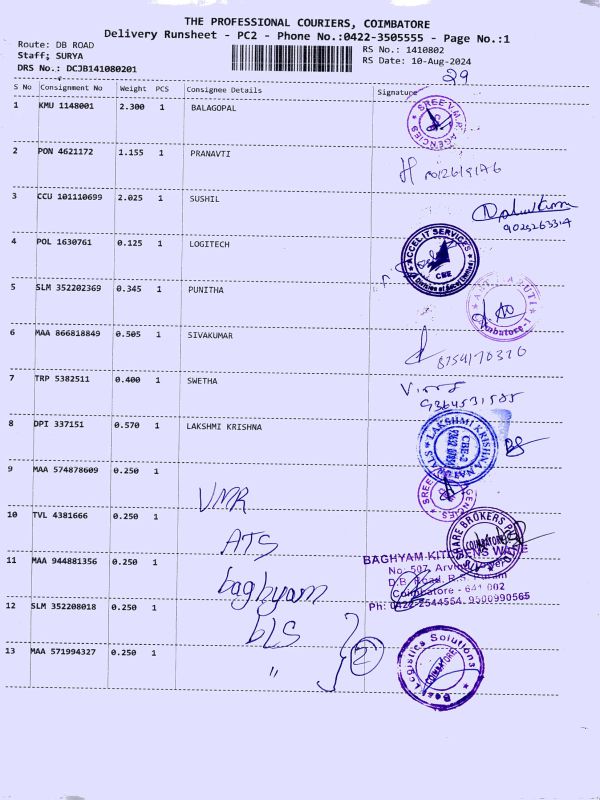 THE PROFESSIONAL COURIERS, COIMBATORE
Delivery Runsheet - PC2 - Phone No.:0422-3505555 - Page No.:1
Route: DB ROAD
RS No.: 1410802
Staff; SURYA
RS Date: 10-Aug-2024
DRS No.: DCJB141080201
29
S No Consignment No Weight PCS Consignee Details Signature
1 KMU 1148001 2.300 1 BALAGOPAL
SREE V.M.R. AGENCIES
2 PON 4621172 1.155 1 PRANAVTI
3 CCU 101110699 2.025 1 SUSHIL
9025263314
4 POL 1630761 0.125 1 LOGITECH
ACCELIT SERVICES
CBE
5 SLM 352202369 0.345 1 PUNITHA
6 MAA 866818849 0.505 1 SIVAKUMAR
8754170326
7 TRP 5382511 0.400 1 SWETHA
9364531585
8 DPI 337151 0.570 1 LAKSHMI KRISHNA
LAKSHMI KRISHNA
9 MAA 574878609 0.250 1
VMR
10 TVL 4381666 0.250 1
ATS
SHARE BROKERS
COIMBATORE
11 MAA 944881356 0.250 1
baghyam
BAGHYAM KITCHENS WARE
No. 507, Arvind
D.B. Road, R.S. Puram
Coimbatore - 641 002
Ph: 0422-2544554, 9500990565
12 SLM 352208018 0.250 1
bLS
2
13 MAA 571994327 0.250 1
"
Logistics Solutions
COIMBATORE